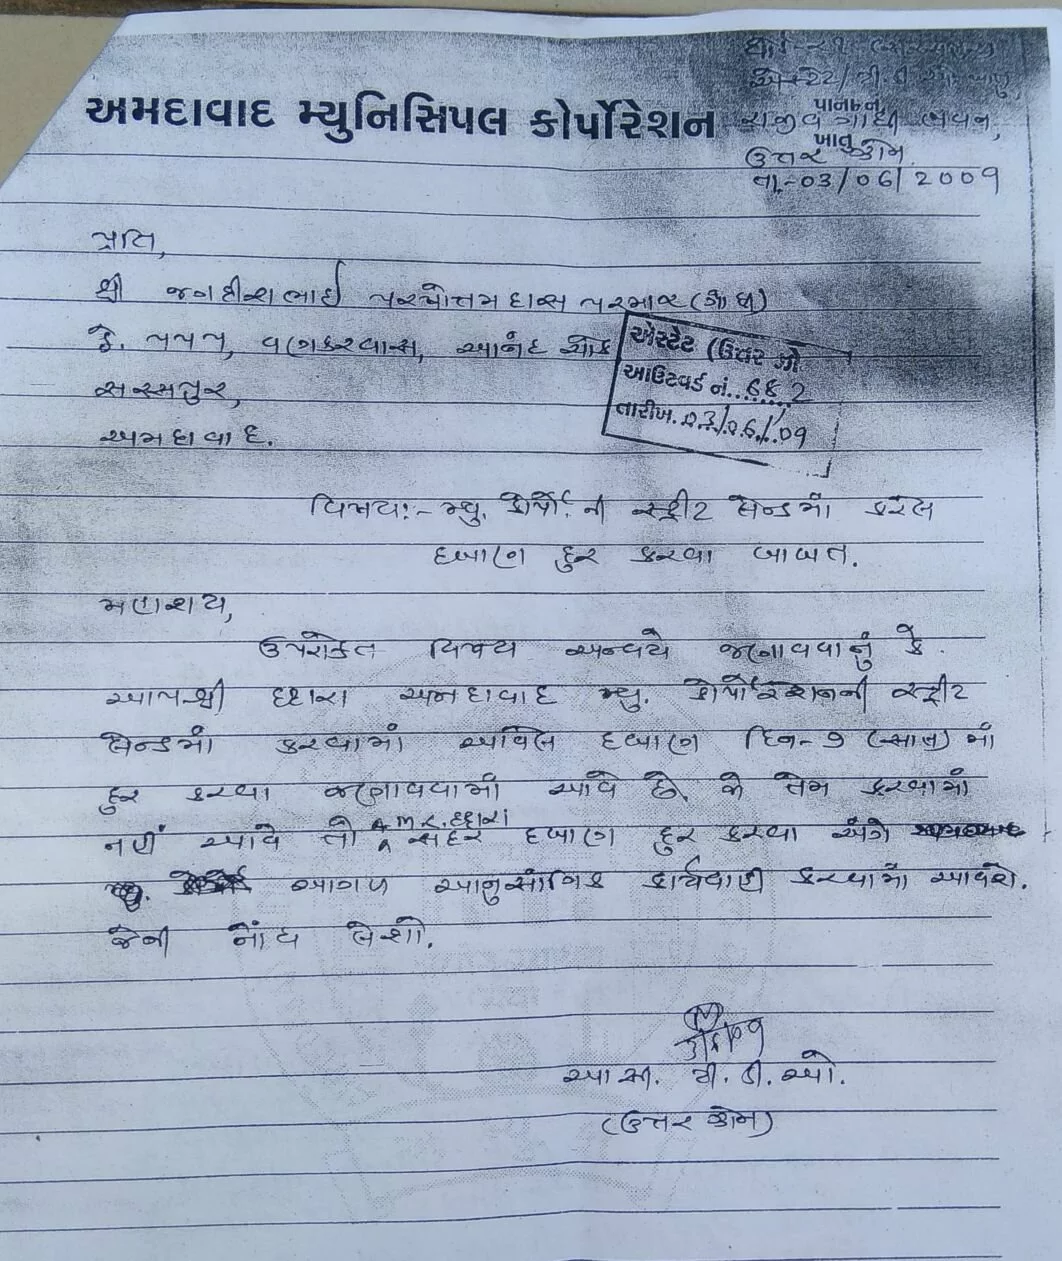 અમદાવાદ મ્યુનિસિપલ કોર્પોરેશન
એસ્ટેટ/ટી.ડી.ઓ. ખાતુ,
પાના નં.
રાજીવ ગાંધી ભવન,
ખાતુ
ઉત્તર ઝોન.
તા.-03/06/2009
પ્રતિ,
શ્રી જગદીશભાઈ પરષોત્તમદાસ પરમાર
કે. ૫૫૫, વણકરવાસ, આનંદ ચોક
સરસપુર,
અમદાવાદ.
એસ્ટેટ (ઉત્તર ઝો
આઉટવર્ડ નં. ૬૬૨
તારીખ. ૦૩/૦૬/09
વિષય:- મ્યુ. કોર્પો. ની સ્ટ્રીટ લેન્ડમાં કરેલ
દબાણ દુર કરવા બાબત.
મહાશય,
ઉપરોક્ત વિષય અન્વયે જણાવવાનું કે.
આપશ્રી દ્વારા અમદાવાદ મ્યુ. કોર્પોરેશનની સ્ટ્રીટ
લેન્ડમાં કરવામાં આવેલ દબાણ દિન-૭ (સાત) માં
દુર કરવા જણાવવામાં આવે છે. જો તેમ કરવામાં
નહીં આવે તો A.M.C. દ્વારા સદર દબાણ દુર કરવા અંગે
આગળ આનુસાંગિક કાર્યવાહી કરવામાં આવશે.
જેની નોંધ લેશો.
3/6/09
આસી. ટી. ડી. ઓ.
(ઉત્તર ઝોન)